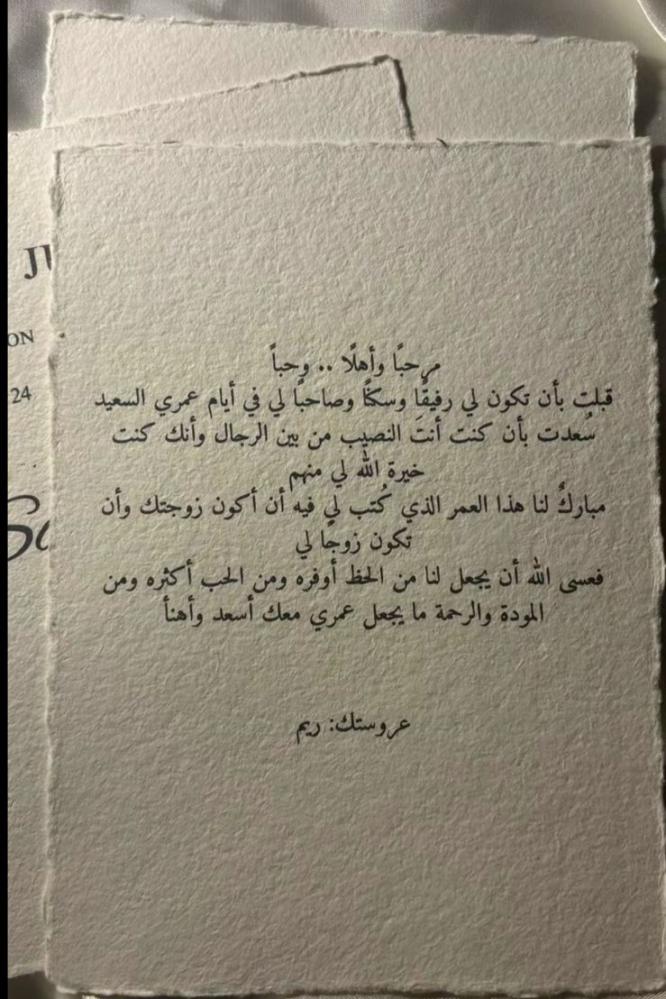 مرحبًا وأهلًا .. وحباً
قبلت بأن تكون لي رفيقًا وسكنًا وصاحبًا لي في أيام عمري السعيد
سُعدت بأن كنت أنتَ النصيب من بين الرجال وأنك كنت
خيرة الله لي منهم
مباركٌ لنا هذا العمر الذي كُتب لي فيه أن أكون زوجتك وأن
تكون زوجًا لي
فعسى الله أن يجعل لنا من الحظ أوفره ومن الحب أكثره ومن
المودة والرحمة ما يجعل عمري معك أسعد وأهنأ
عروستك: ريم
ON
24